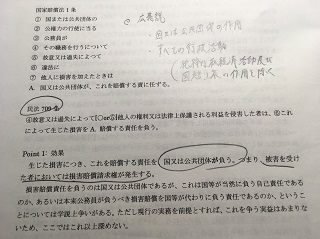 国家賠償法1条
① 国または公共団体の
② 公権力の行使に当る
③ 公務員が
④ その職務を行うについて
⑤ 故意又は過失によって
⑥ 違法に
⑦ 他人に損害を加えたときは
A 国又は公共団体が、これを賠償する責に任ずる。
② 広義説
・国又は公共団体の作用
・すべての行政活動
民法 709条
④故意又は過失によって⑦[⑥or⑤]他人の権利又は法律上保護される利益を侵害した者は、⑥これ
によって生じた損害を A. 賠償する責任を負う。
Point 1: 効果
生じた損害につき、これを賠償する責任を国又は公共団体が負う。つまり、被害を受け
た者においては損害賠償請求権が発生する。
損害賠償責任を負うのは国又は公共団体であるが、これは国等が当然に負う自己責任である
のか、あるいは本来公務員が負うべき損害賠償を国等が代わりに負う責任であるのか、という
ことについては学説上争いがある。ただし現行の実務を前提とすれば、これを争う実益はあまりな
いため、ここではこれ以上深めない。